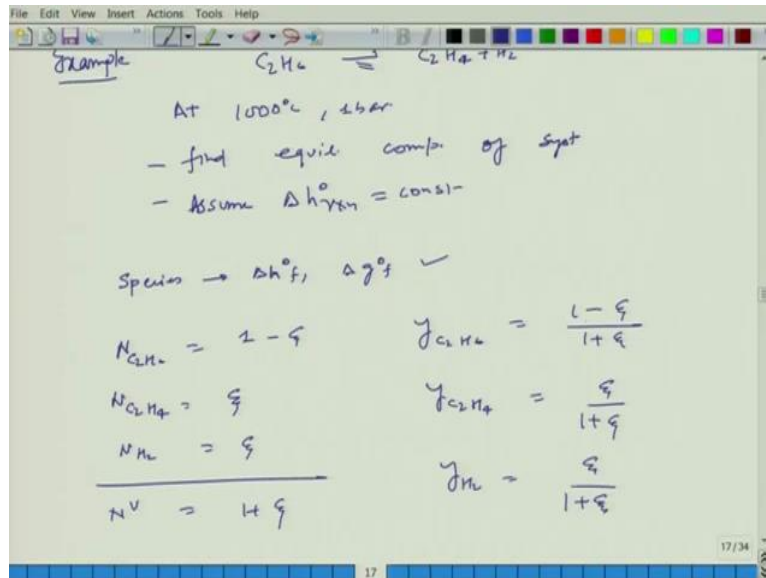 File Edit View Insert Actions Tools Help
Example C2H6 ⇌ C2H4 + H2
At 1000°C, 1bar
- find equil comp. of syst
- Assume Δh°rxn = const
Species → Δh°f, Δg°f ✓
N_C2H6 = 1 - ξ
y_C2H6 = (1 - ξ)/(1 + ξ)
N_C2H4 = ξ
y_C2H4 = ξ/(1 + ξ)
N_H2 = ξ
y_H2 = ξ/(1 + ξ)
N^V = 1 + ξ
17/34
17